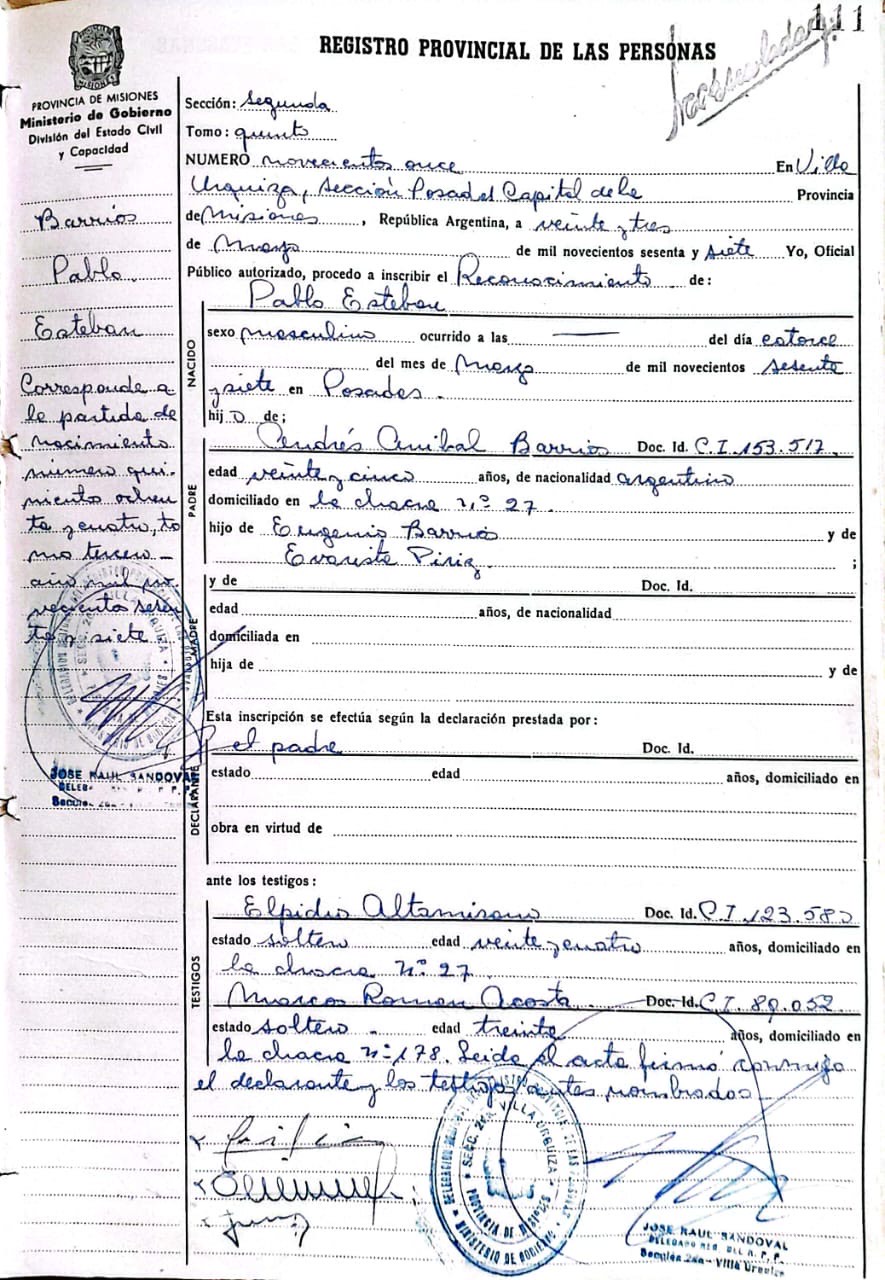 111
REGISTRO PROVINCIAL DE LAS PERSONAS
PROVINCIA DE MISIONES
Ministerio de Gobierno
División del Estado Civil
y Capacidad
Barrios
Pablo
Esteban
Corresponde a
la partida de
nacimiento
numero qui-
nientos ochen
ta y cuatro, to
mo tercero -
año mil no
vecientos sesen
ta y siete
JOSE RAUL SANDOVAL
Sección: segunda
Tomo: quinto
NUMERO novecientos once En Villa
Urquiza, Sección Posadas Capital de la Provincia
de Misiones, República Argentina, a veinte y tres
de Marzo de mil novecientos sesenta y siete Yo, Oficial
Público autorizado, procedo a inscribir el Reconocimiento de:
Pablo Esteban
NACIDO
sexo masculino ocurrido a las — del día catorce
del mes de Marzo de mil novecientos sesenta
y siete en Posadas.
hijo de;
PADRE
Andrés Anibal Barrios Doc. Id. C.I. 153.517.
edad veinte y cinco años, de nacionalidad argentino
domiciliado en la chacra n.º 27.
hijo de Eugenio Barrios y de
Evarista Piriz. ;
MADRE
y de Doc. Id.
edad años, de nacionalidad
domiciliada en
hija de y de
Esta inscripción se efectúa según la declaración prestada por:
DECLARANTE
el padre Doc. Id.
estado edad años, domiciliado en
obra en virtud de
ante los testigos:
TESTIGOS
Elpidio Altamirano Doc. Id. C.I. 123.580
estado soltero edad veinte y cuatro años, domiciliado en
la chacra N.º 27.
Marcos Roman Acosta. Doc. Id. C.I. 89.052.
estado soltero. edad treinta años, domiciliado en
la chacra n.º 178. Leida el acta firmó conmigo
el declarante y los testigos antes nombrados
SECC. 2da. VILLA URQUIZA
PROVINCIA DE MISIONES
MINISTERIO DE GOBIERNO
JOSE RAUL SANDOVAL
DELEGADO REG. DEL R. P. P.
Sección 2da - Villa Urquiza